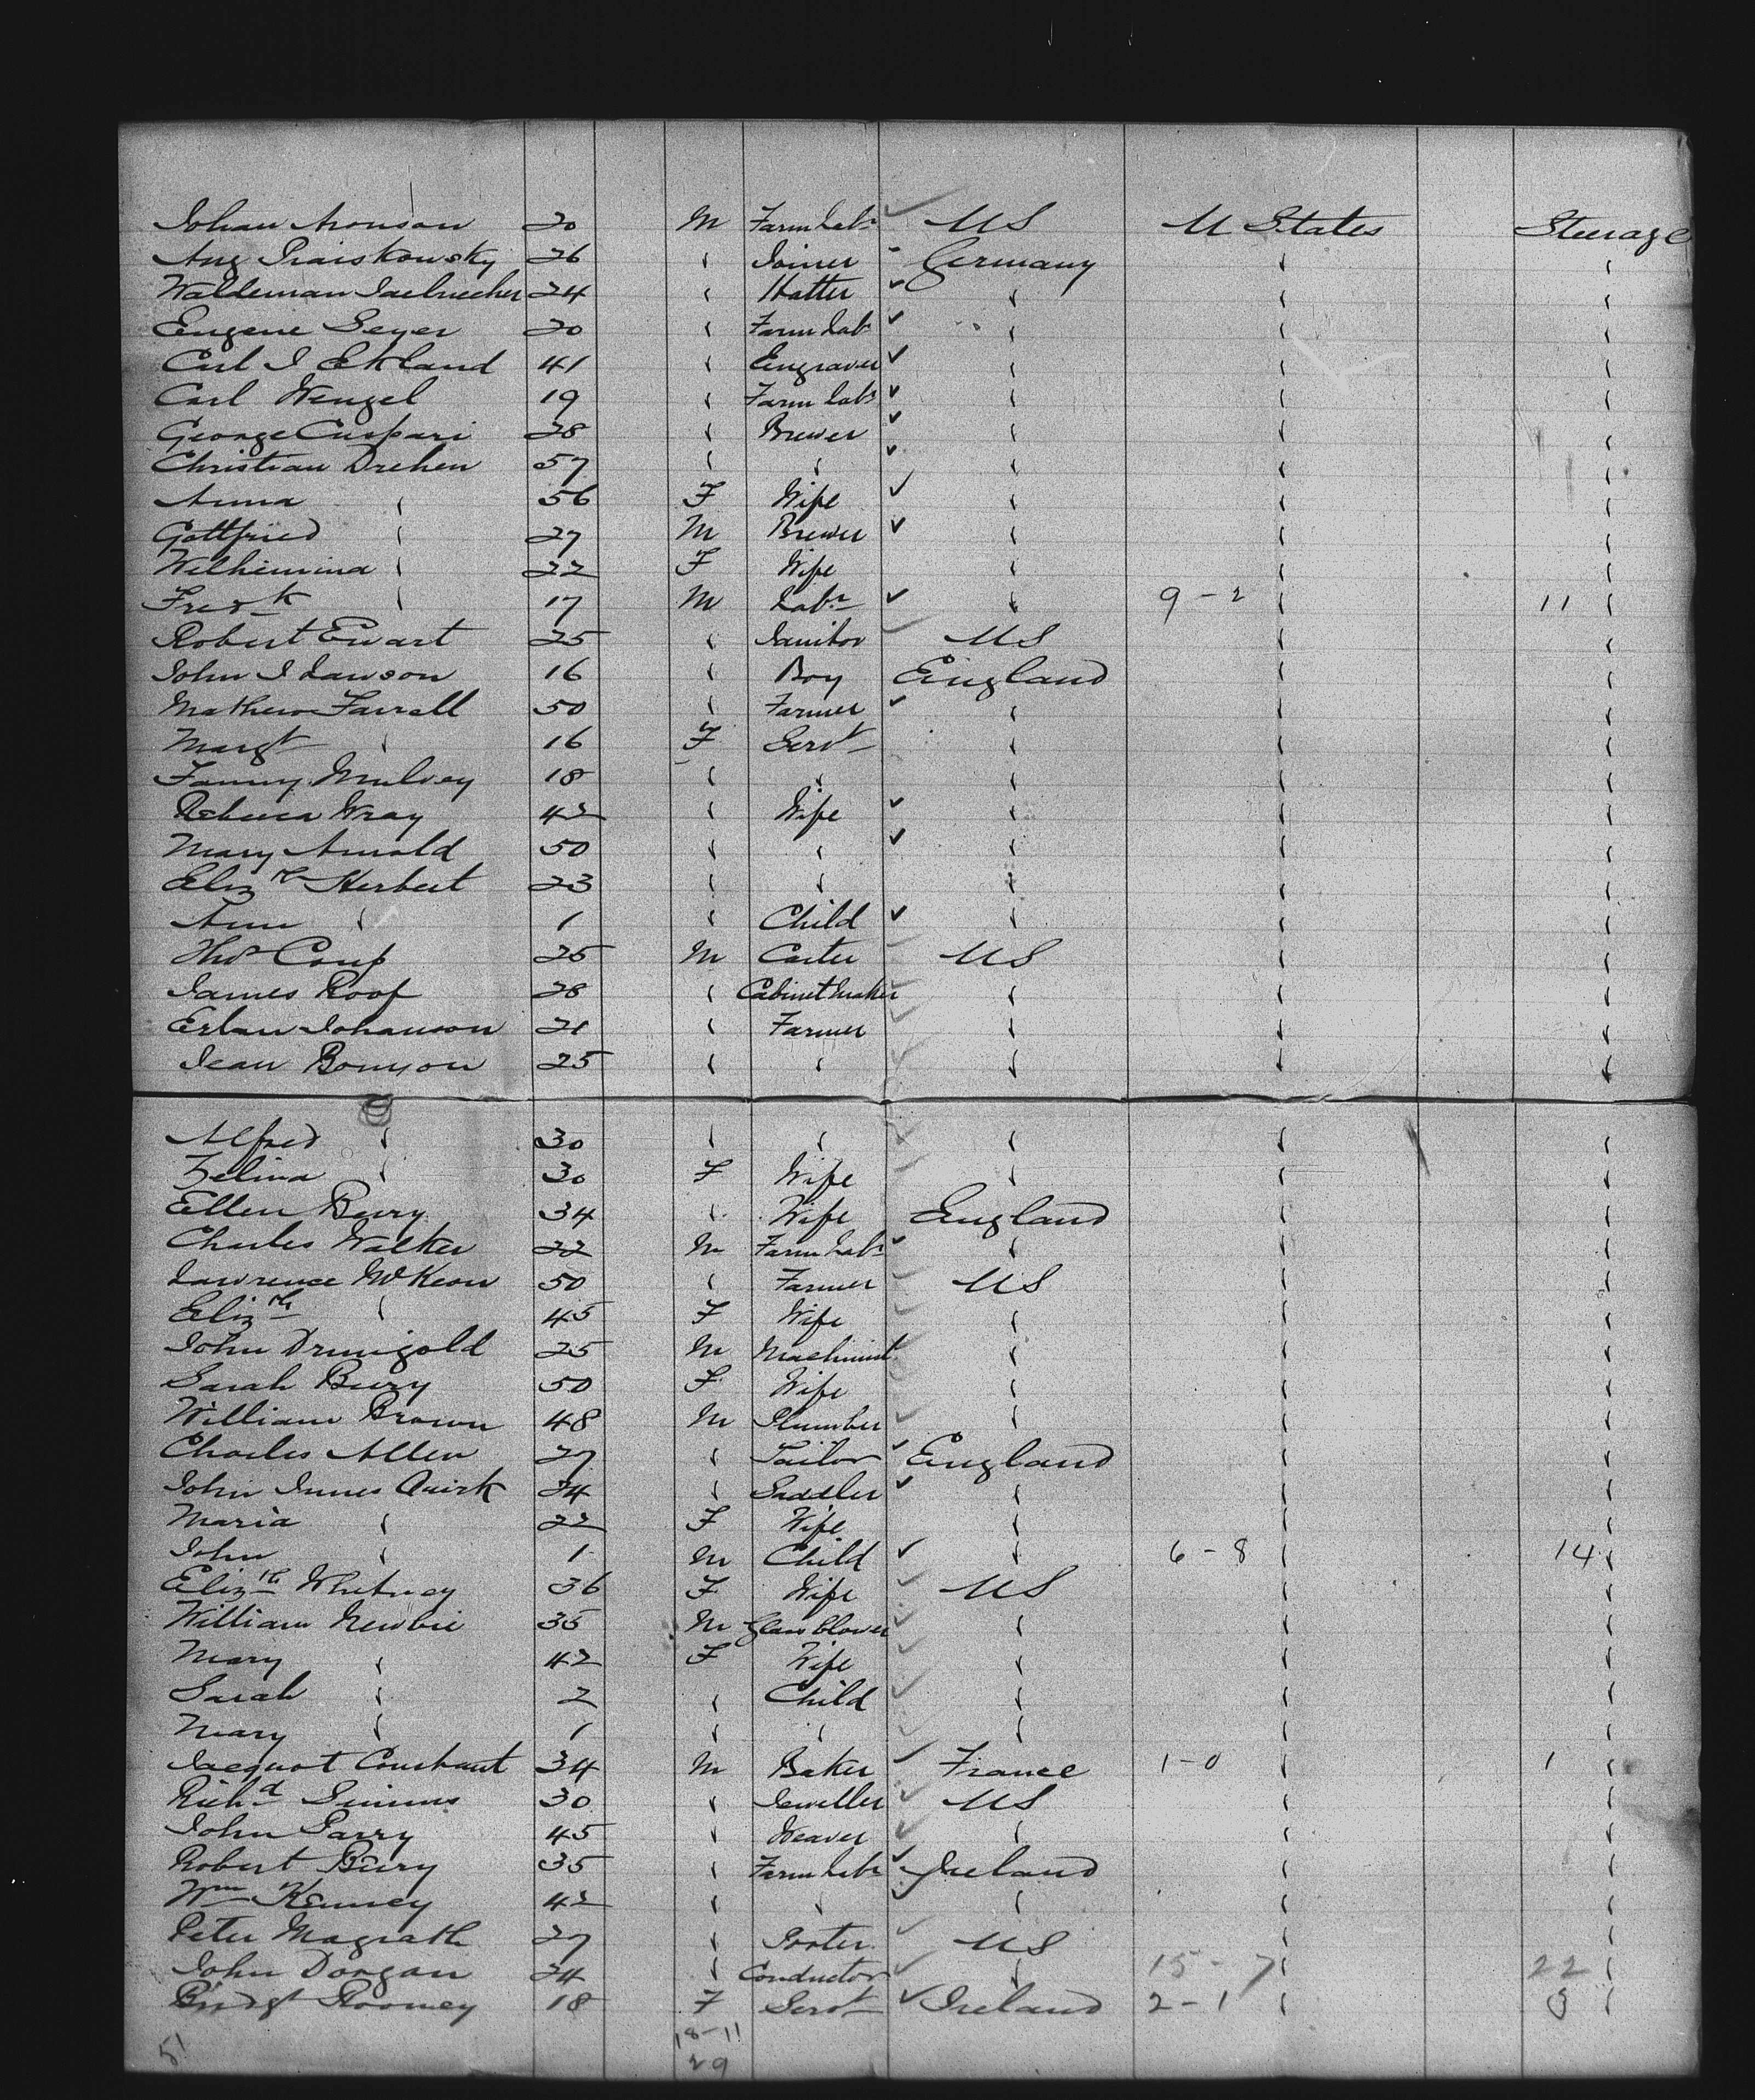 Johan Aronson 20 M Farm Labr US U States Steerage
Aug Praiskowsky 26 " Joiner Germany " "
Waldeman 24 " Hatter " " "
Eugene Seyer 20 " Farm Labr " " "
Carl J Ekland 41 " Engraver " " "
Carl Wenzel 19 " Farm Labr " " "
George Caspari 28 " Brewer " " "
Christian Drehen 57 " " " " "
Anna " 56 F Wife " " "
Gottfried " 27 M Brewer " " "
Wilhemina " 22 F Wife " " "
Fredk " 17 M Labr " 9-2 " 11 "
Robert Ewart 25 " Janitor US " "
John J Lawson 16 " Boy England " "
Mathew Farrell 50 " Farmer " " "
Margt " 16 F Servt " " "
Fanny Mulvey 18 " " " " "
Rebecca Wray 42 " Wife " " "
Mary Arnold 50 " " " " "
Elizth Herbert 23 " " " " "
Ann " 1 " Child " " "
Thos Coup 25 M Carter US " "
James Roof 28 " Cabinet Maker " " "
Erlan Johanson 21 " Farmer " " "
Jean Bonyon 25 " " " " "
Alfred " 30 " " " " "
Zelina " 30 F Wife " " "
Ellen Bury 34 " Wife England " "
Charles Walker 22 M Farm Labr " " "
Lawrence McKeon 50 " Farmer US " "
Elizth " 45 F Wife " " "
John Drunigold 25 M Machinist " " "
Sarah Bury 50 F Wife " " "
William Brown 48 M Plumber " " "
Charles Allen 27 " Tailor England " "
John Innes Quirk 24 " Saddler " " "
Maria " 22 F Wife " " "
John " 1 M Child " 6-8 " 14 "
Elizth Whitney 36 F Wife US " "
William Newbie 35 M Glass blower " " "
Mary " 42 F Wife " " "
Sarah " 2 " Child " " "
Mary " 1 " " " " "
Jacquot Constant 34 M Baker France 1-0 " 1 "
Richd Simms 30 " Jeweller US " "
John Parry 45 " Weaver " " "
Robert Bury 35 " Farm Labr Ireland " "
Wm Kenney 42 " " " " "
Peter Magrath 27 " Porter US " "
John Dorgan 24 " Conductor " 15-7 " 22 "
Bridgt Rooney 18 F Servt Ireland 2-1 " 3 "
51 18-11
29